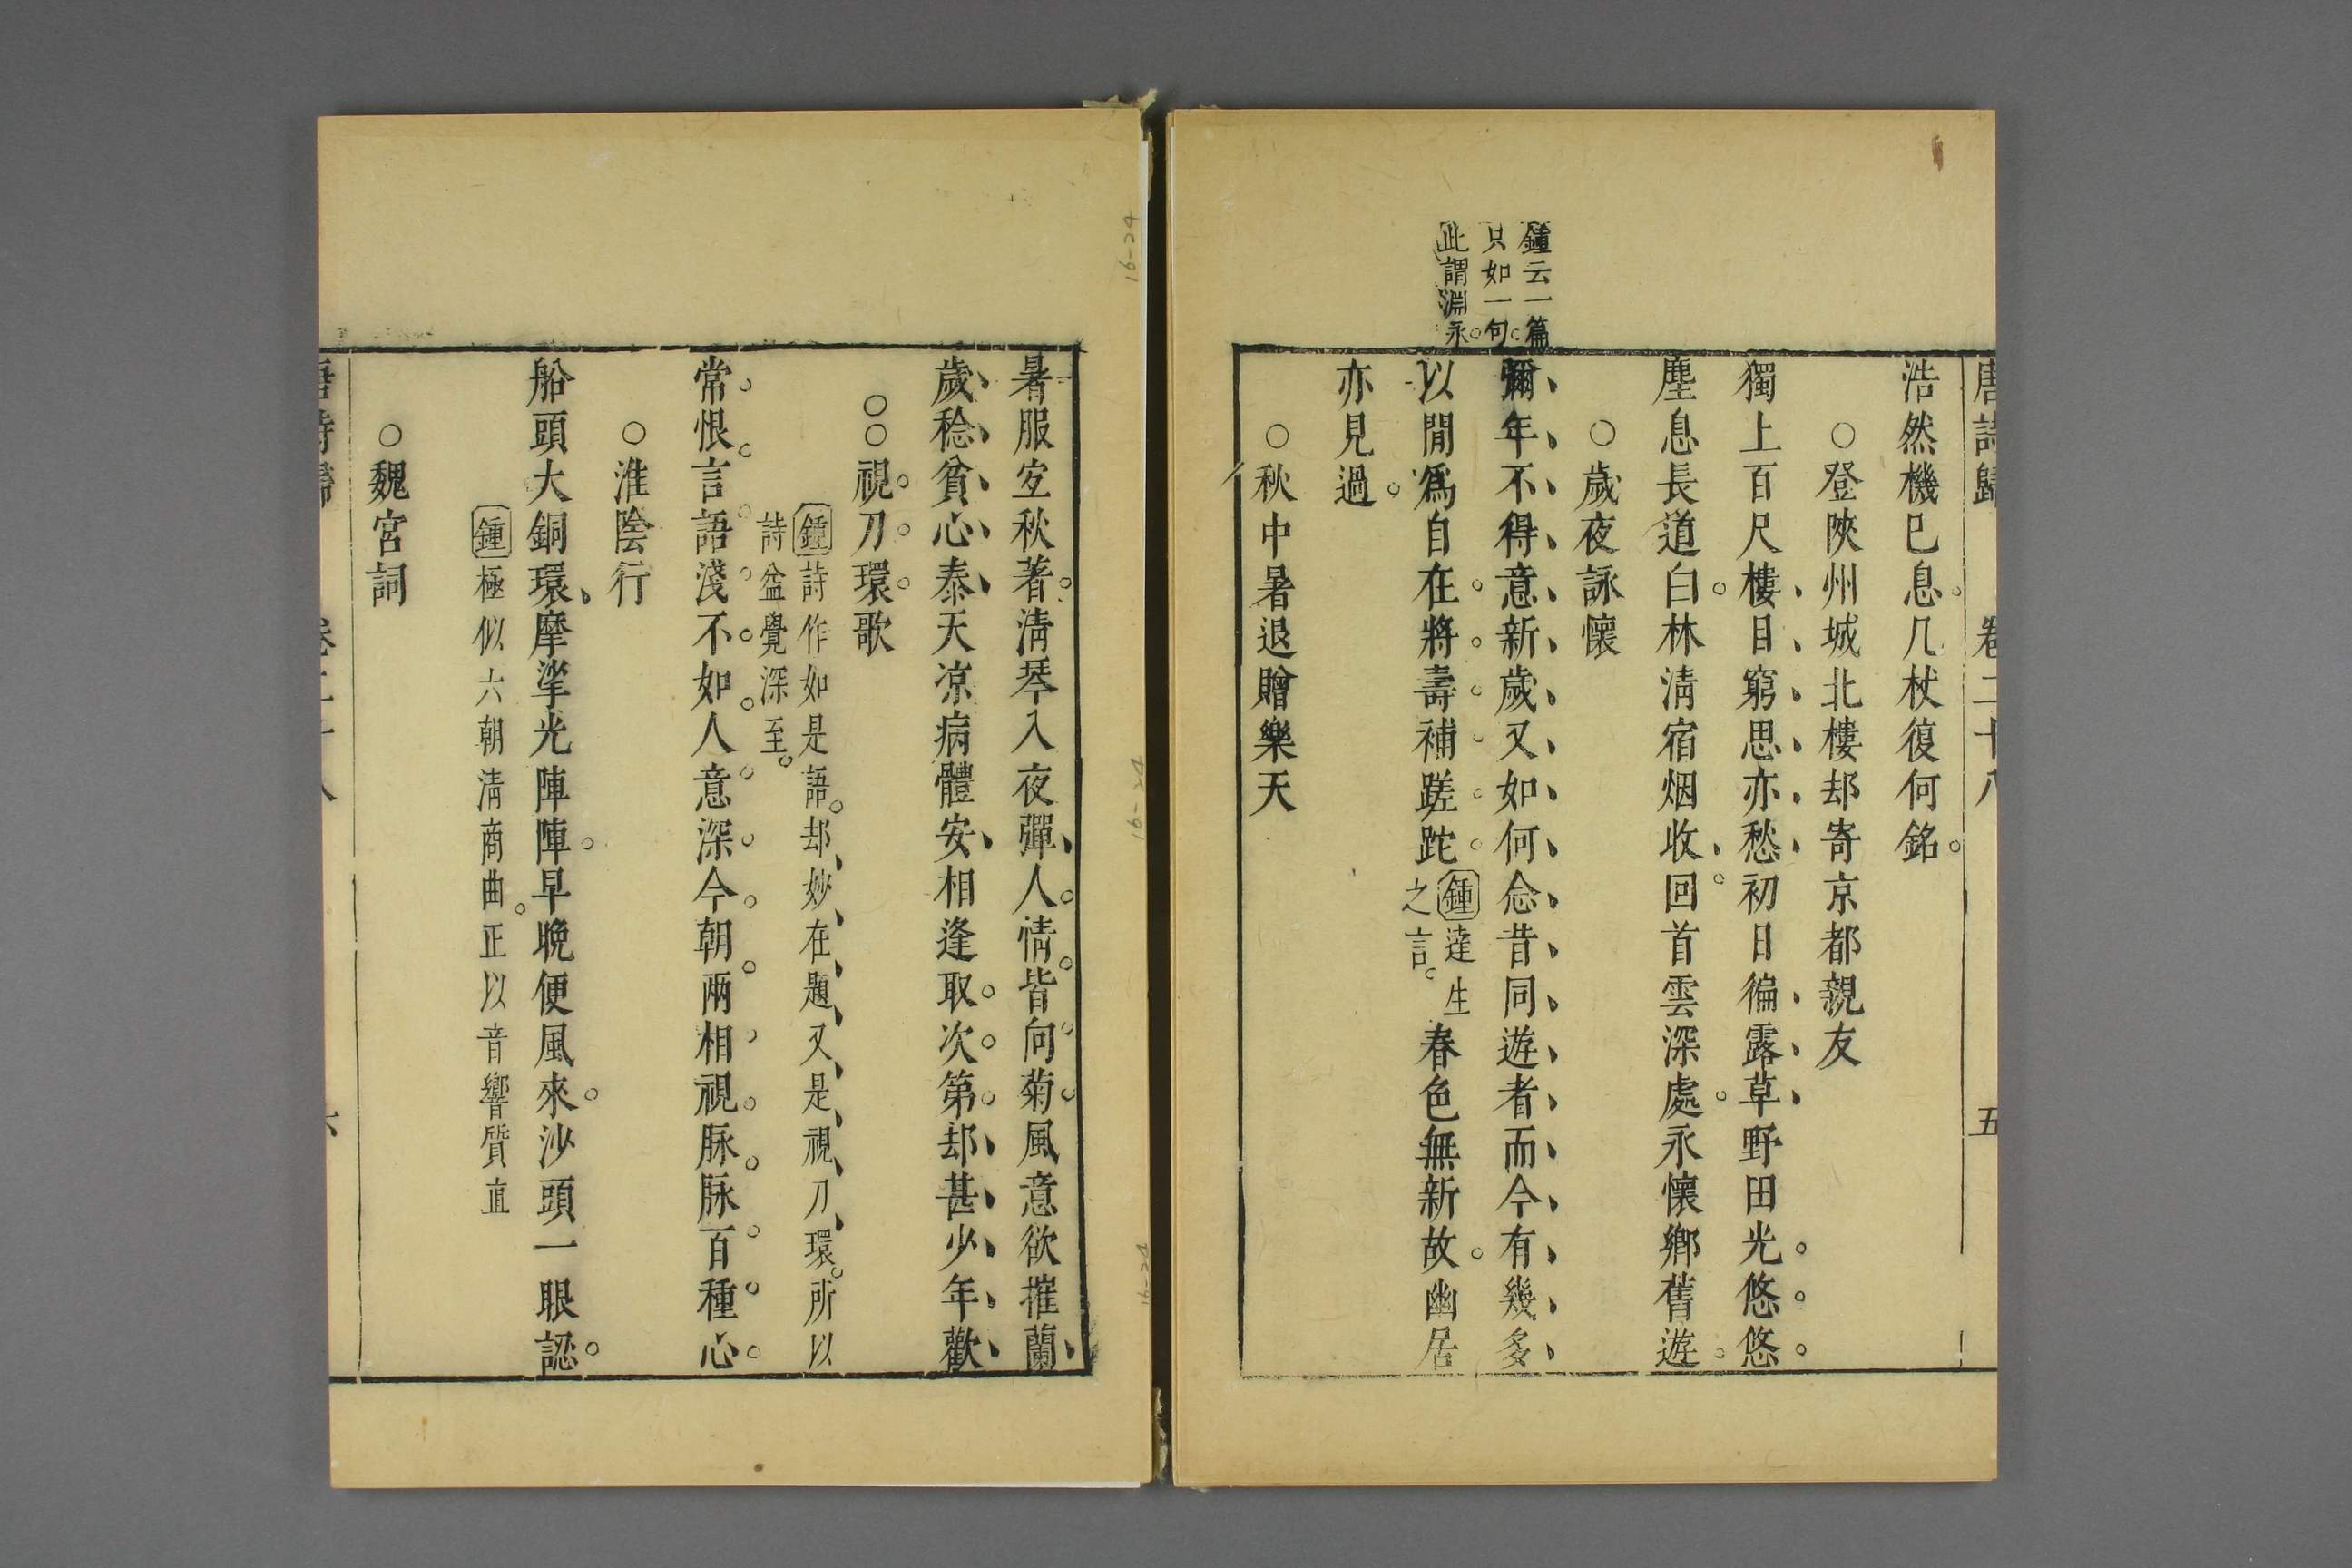 唐詩歸 卷二十八 五
浩然機已息几杖復何銘
○登陝州城北樓却寄京都親友
獨上百尺樓目窮思亦愁初日徧露草野田光悠悠
塵息長道白林淸宿烟收回首雲深處永懷鄉舊遊
○歲夜詠懷
鍾云一篇
只如一句
此謂淵永
彌年不得意新歲又如何念昔同遊者而今有幾多
以閒爲自在將壽補蹉跎鍾達生之言春色無新故幽居
亦見過
○秋中暑退贈樂天
暑服宐秋著淸琴入夜彈人情皆向菊風意欲摧蘭
歲稔貧心泰天凉病體安相逢取次第却甚少年歡
○○視刀環歌
鍾詩作如是語却妙在題又是視刀環所以
詩益覺深至
常恨言語淺不如人意深今朝兩相視脉脉百種心
○淮陰行
船頭大銅環摩挲光陣陣早晚便風來沙頭一眼認
鍾極似六朝淸商曲正以音響質直
○魏宮詞
唐詩歸